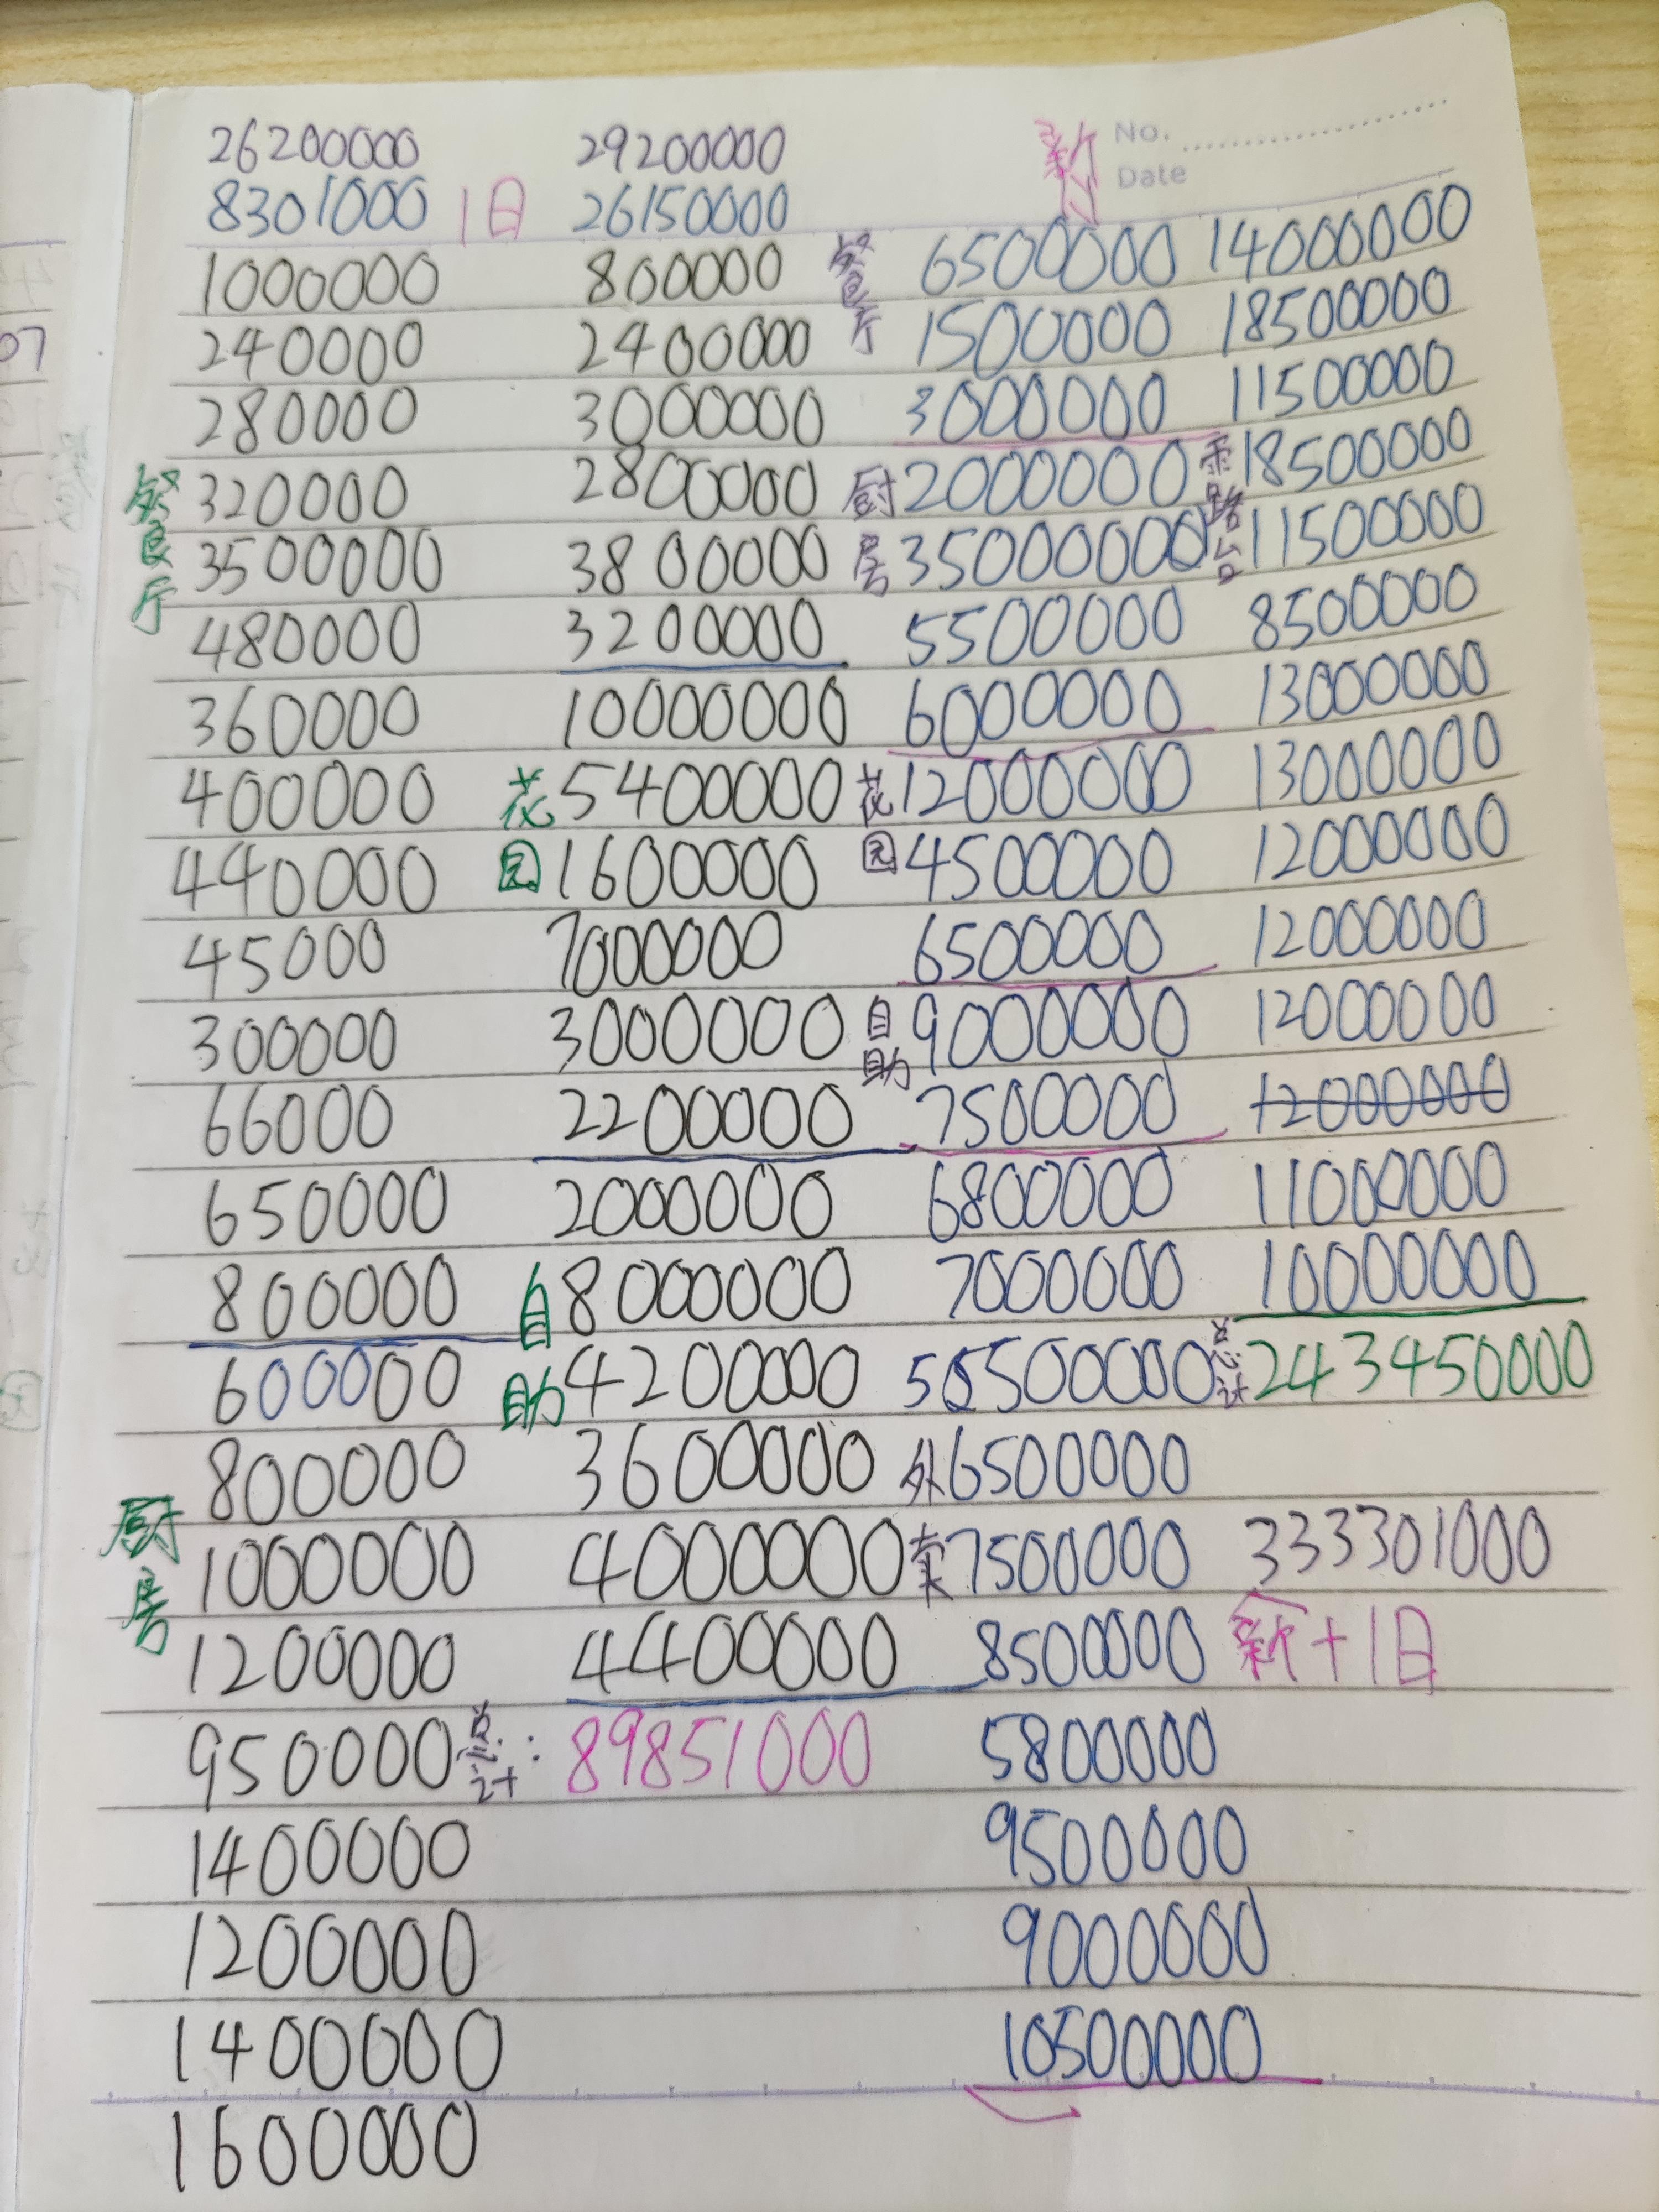 26200000 29200000 新 No.
8301000 1日 26150000 Date
1000000 800000 餐厅 6500000 14000000
240000 2400000 1500000 18500000
280000 3000000 3000000 11500000
餐厅 320000 2800000 厨房 2000000 露台 18500000
3500000 3800000 35000000 11500000
480000 3200000 5500000 8500000
360000 10000000 6000000 13000000
400000 花园 5400000 花园 12000000 13000000
440000 1600000 4500000 12000000
45000 7000000 6500000 12000000
300000 3000000 自助 9000000 12000000
66000 2200000 7500000 12000000
650000 2000000 6800000 11000000
800000 自助 8000000 7000000 10000000
600000 4200000 总计 243450000
800000 3600000 外卖 6500000
厨房 1000000 4000000 7500000 333301000
1200000 4400000 8500000 新+1日
950000 总计: 89851000 5800000
1400000 9500000
1200000 9000000
1400000 10500000
1600000